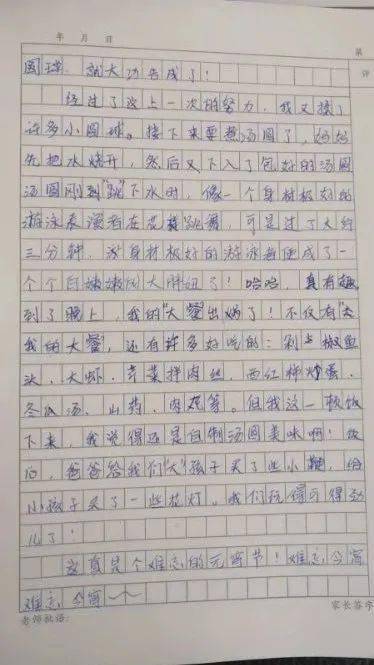 年 月 日 第
评
圆球，就大功告成了！
经过了这上一次的努力，我又搓了
许多小圆球。接下来要煮汤圆了，妈妈
先把水烧开，然后又下入了包好的汤圆
汤圆刚到"跳"下水时，像一个身材极好的
游泳表演者在花样跳舞，可是过了大约
三分钟，身材极好的游泳者便成了一
个个白嫩嫩的大胖妞了！哈哈，真有趣
到了晚上，我的"大餐"出锅了！不仅有"去
我的大餐，还有许多好吃的：剁点椒鱼
头、大虾、芹菜拌肉丝、西红柿炒蛋、
冬瓜汤、山药、肉丸等。但我这一顿饭
下来，我觉得还是自制汤圆美味啊！饭
后，爸爸给我们"大"孩子买了些小鞭，给
小孩子买了一些花灯。我们玩得可得劲
儿了！
这真是个难忘的元宵节！难忘今宵
难忘今宵
老师批语： 家长签字